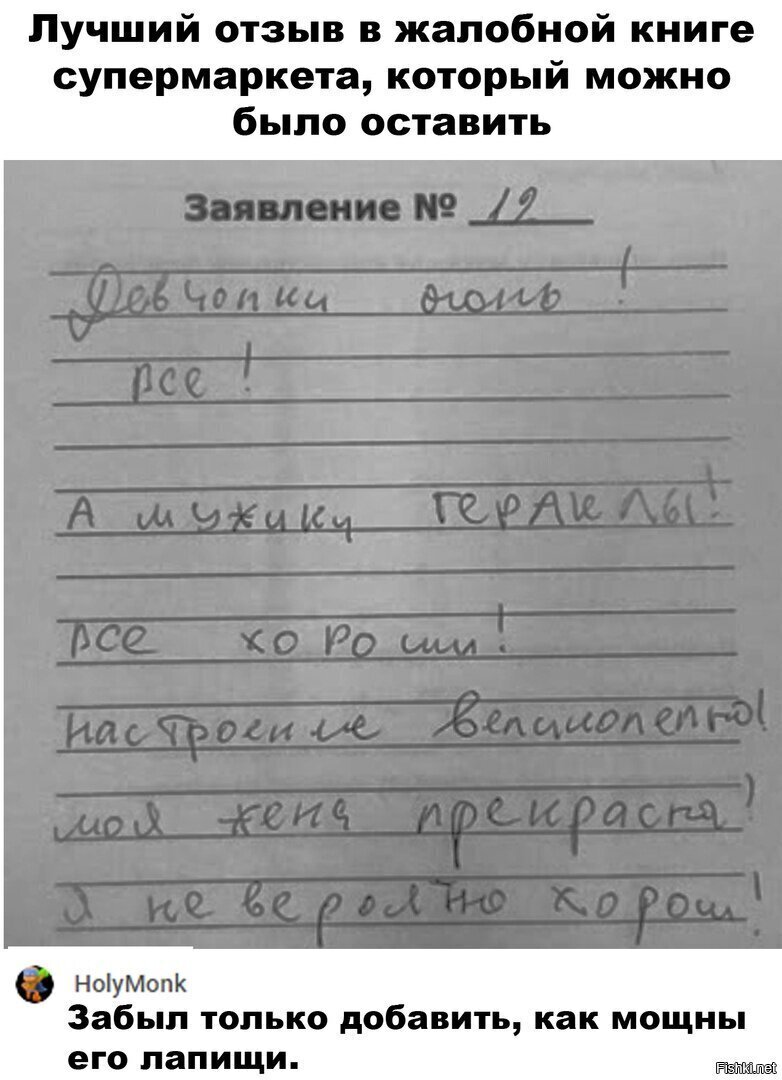 Лучший отзыв в жалобной книге
супермаркета, который можно
было оставить
Заявление № 12
Девчопки огонь !
все !
А мужики ГЕРАКЛЫ!
все хороши!
настроение великолепно!
моя жена прекрасна!
Я не вероятно хорош!
HolyMonk
Забыл только добавить, как мощны
его лапищи.
Fishki.net